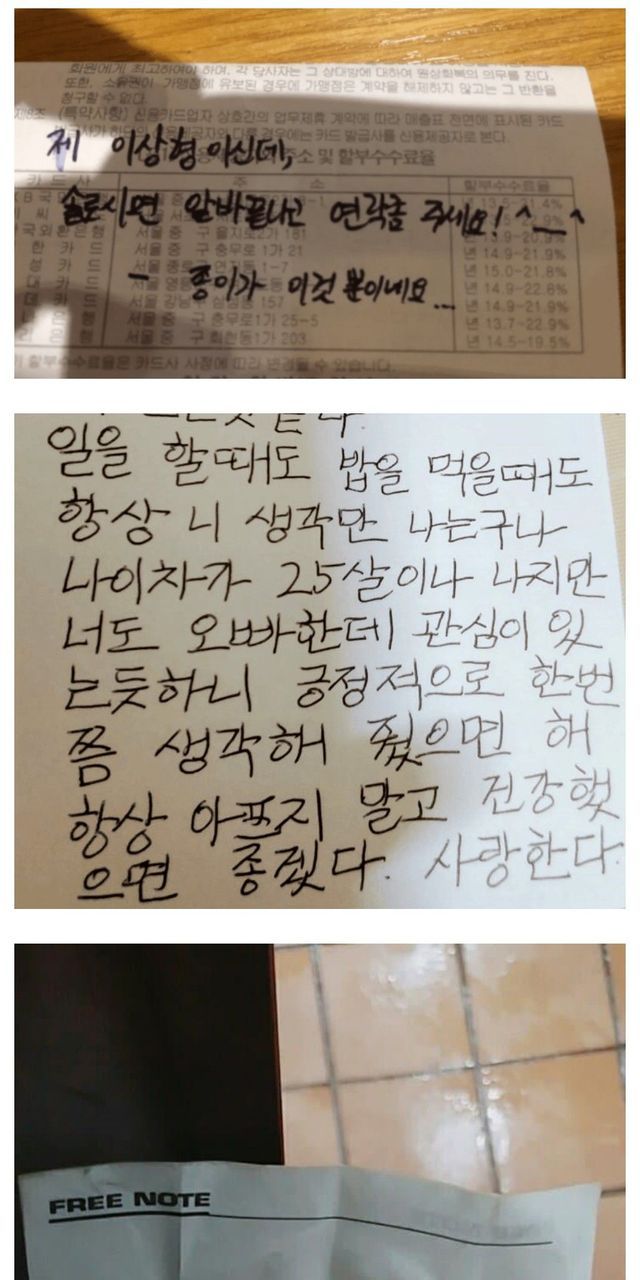 회원에게 최고하여야 하며, 각 당사자는 그 상대방에 대하여 원상회복의 의무를 진다.
또한, 소유권이 가맹점에 유보된 경우에 가맹점은 계약을 해제하지 않고는 그 반환을
청구할 수 없다.
(특약사항) 신용카드업자 상호간의 업무제휴 계약에 따라 매출표 전면에 표시된 카드
다른 경우에는 카드 발급사를 신용제공자로 본다.
제 이상형이신데,
소 및 할부수수료율
카 드 사 주 소 할부수수료율
솔로시면 알바끝나고 연락좀 주세요! ^__^
국외환은행 서울 중 구 을지로2가 181
한 카 드 서울 중 구 충무로 1가 21 년 14.9-21.9%
성 카 드 서울 종로 1-7 년 15.0-21.8%
대 카 드 서울 년 14.9-22.8%
- 종이가 이것 뿐이네요...
데 카 드 서울 강남 157 년 14.9-21.9%
은 행 서울 중 구 충무로1가 25-5 년 13.7-22.9%
은 행 서울 중 구 회현동1가 203 년 14.5-19.5%
할부수수료율은 카드사 사정에 따라 변경될 수 있습니다.
일을 할때도 밥을 먹을때도
항상 니 생각만 나는구나
나이차가 25살이나 나지만
너도 오빠한데 관심이 있
는듯하니 긍정적으로 한번
쯤 생각해 줬으면 해
항상 아프지 말고 건강했
으면 좋겠다. 사랑한다.
FREE NOTE